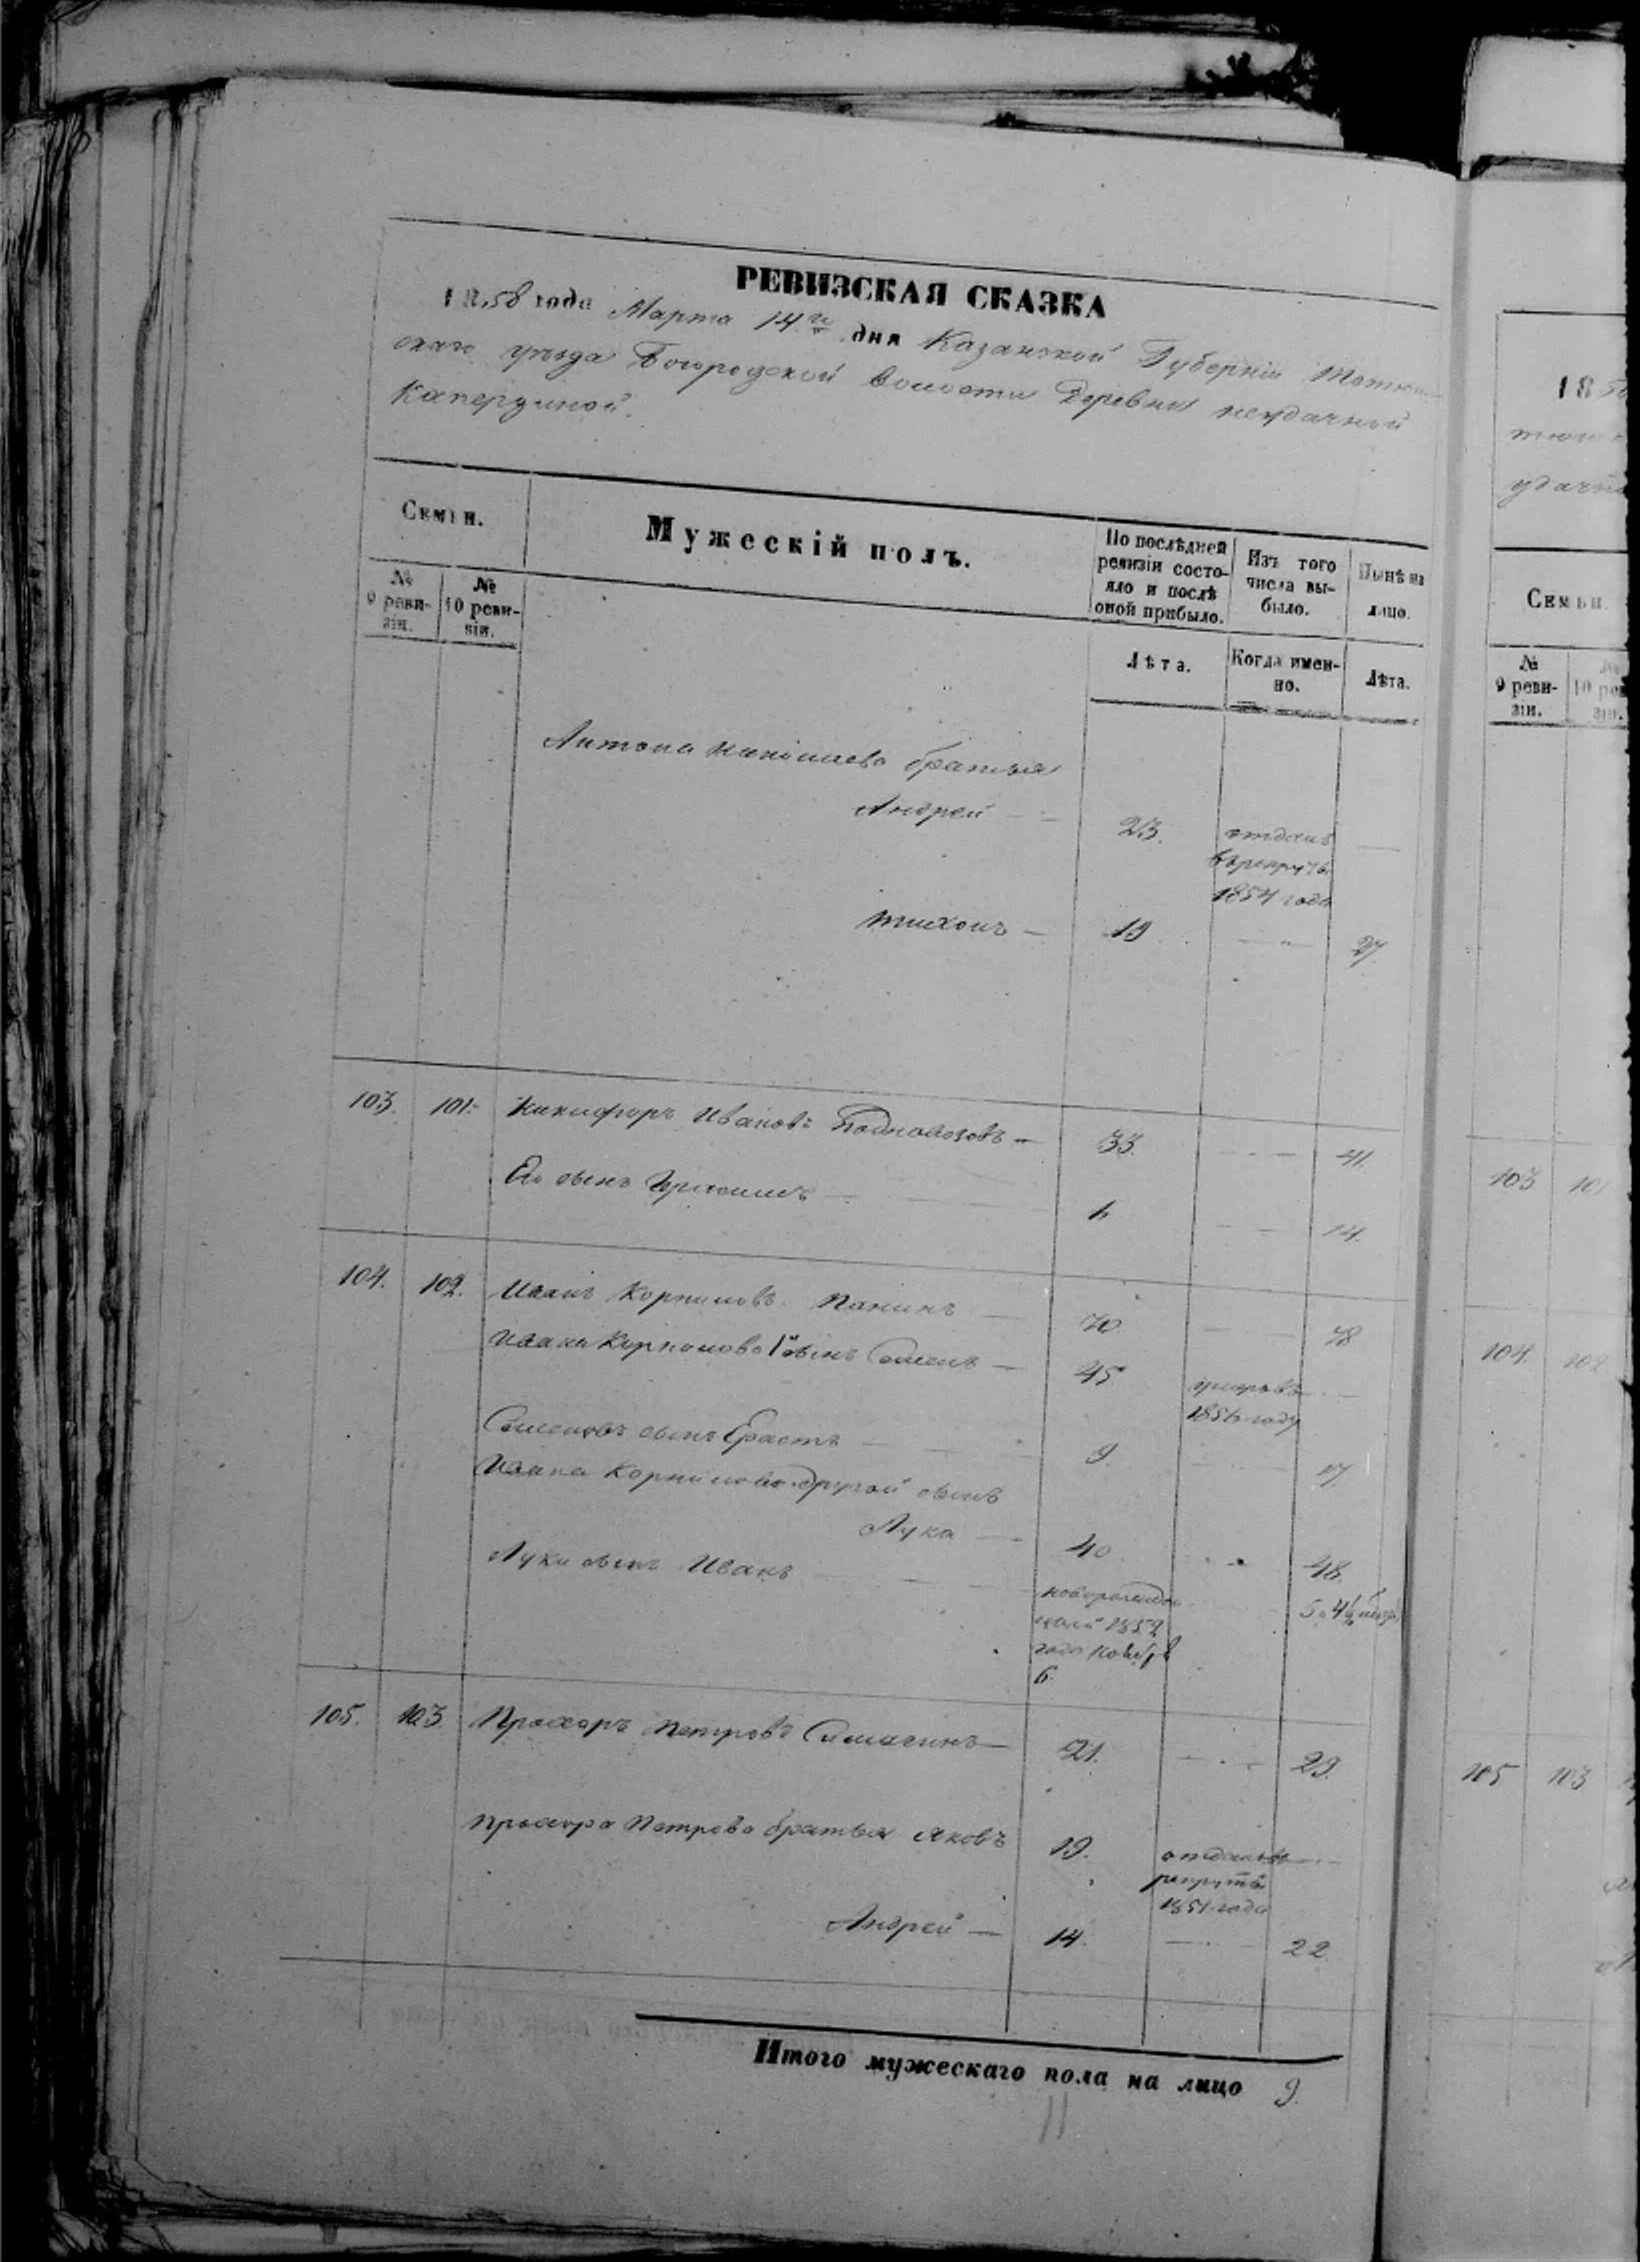 РЕВИЗСКАЯ СКАЗКА
1858 года Марта 14го дня Казанской Губерніи Тетюш
скаго уѣзда Богородской волости Деревни неудачной
Капердиной.
Семьи.
Мужескій полъ.
По послѣдней ревизіи состояло и послѣ оной прибыло.
Изъ того числа выбыло.
Нынѣ на лицо.
№ 9 ревизіи.
№ 10 ревизіи.
Лѣта.
Когда именно.
Лѣта.
Антона братья
Андрей 23. отданъ —
въ рекруты
1854 года
Тихонъ — 19 — " — 27.
103. 101. Никифоръ Ивановъ — 33. — 41.
Его сынъ — 14.
104. 102. Иванъ Корниловъ Панинъ 70 — 78
Ивана Корнилова 1й сынъ Семенъ — 45 —
185 году
Семеновъ сынъ Ерастъ — 9. — 17.
Ивана Корнилова другой сынъ
Лука — 40 48.
Луки сынъ Иванъ — новорожден
ный 1852
года Ноября
6.
105. 103. Прохоръ Петровъ Симагинъ — 21. — 29.
Прохора Петрова братья Яковъ 19. отданъ въ —
рекруты
1851 года
Андрей — 14. — 22.
Итого мужескаго пола на лицо 9.
1858
удачн
Семьи.
№ 9 ревизіи.
№ 10 рев
зіи.
103 101
104. 102
105 103